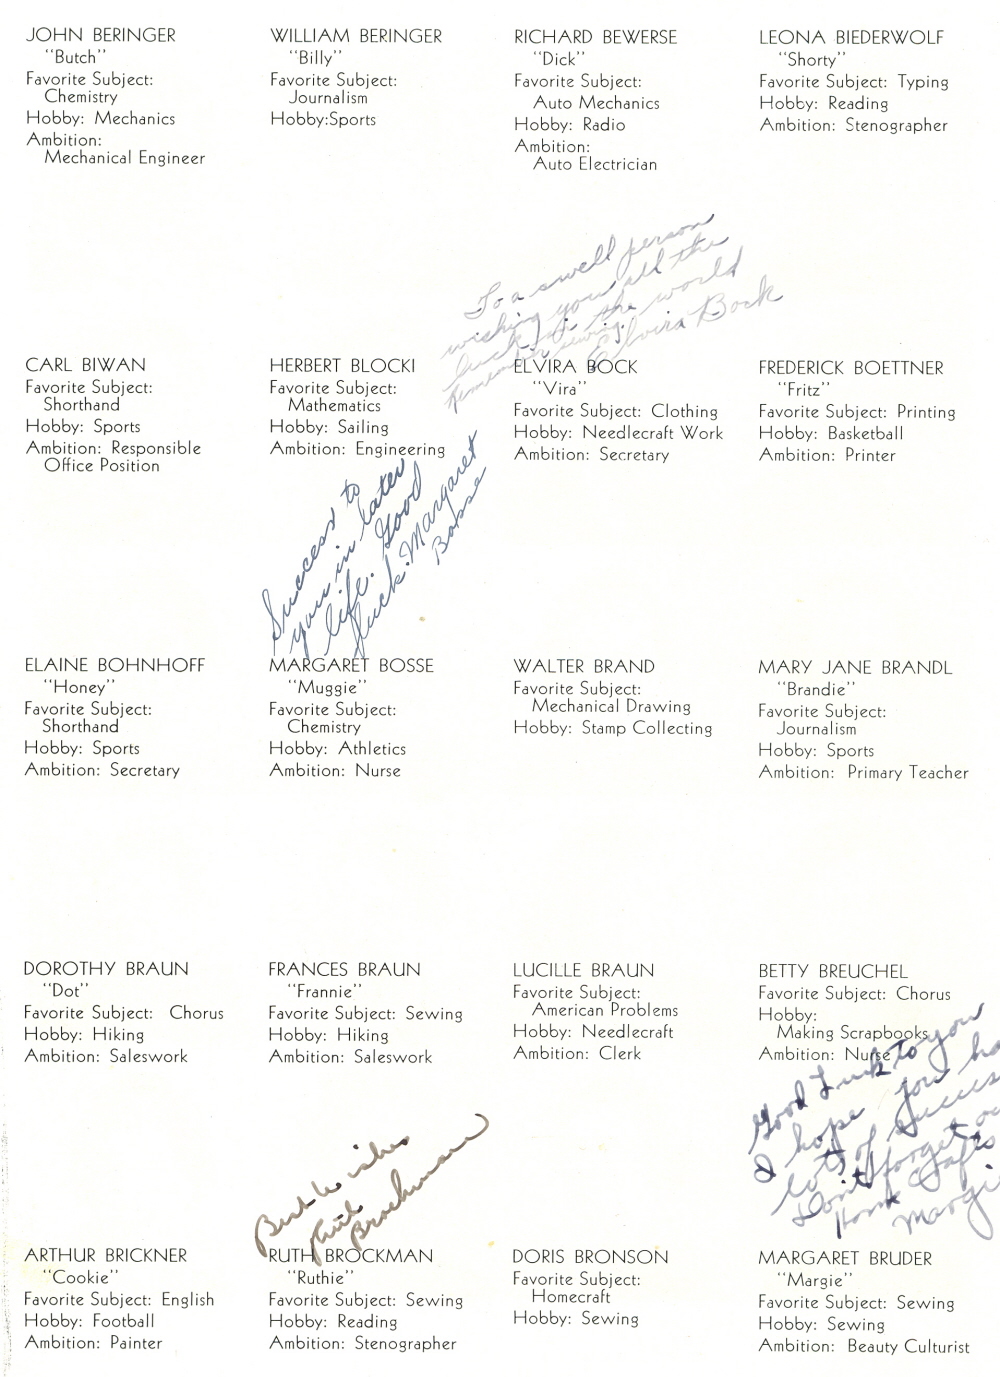 JOHN BERINGER
"Butch"
Favorite Subject:
Chemistry
Hobby: Mechanics
Ambition:
Mechanical Engineer
WILLIAM BERINGER
"Billy"
Favorite Subject:
Journalism
Hobby:Sports
RICHARD BEWERSE
"Dick"
Favorite Subject:
Auto Mechanics
Hobby: Radio
Ambition:
Auto Electrician
LEONA BIEDERWOLF
"Shorty"
Favorite Subject: Typing
Hobby: Reading
Ambition: Stenographer
To a swell person
wishing you all the
luck in the world
Remember sewing.
Elvira Bock
CARL BIWAN
Favorite Subject:
Shorthand
Hobby: Sports
Ambition: Responsible
Office Position
HERBERT BLOCKI
Favorite Subject:
Mathematics
Hobby: Sailing
Ambition: Engineering
ELVIRA BOCK
"Vira"
Favorite Subject: Clothing
Hobby: Needlecraft Work
Ambition: Secretary
FREDERICK BOETTNER
"Fritz"
Favorite Subject: Printing
Hobby: Basketball
Ambition: Printer
Success to
you in later
life. Good
luck. Margaret
Bosse
ELAINE BOHNHOFF
"Honey"
Favorite Subject:
Shorthand
Hobby: Sports
Ambition: Secretary
MARGARET BOSSE
"Muggie"
Favorite Subject:
Chemistry
Hobby: Athletics
Ambition: Nurse
WALTER BRAND
Favorite Subject:
Mechanical Drawing
Hobby: Stamp Collecting
MARY JANE BRANDL
"Brandie"
Favorite Subject:
Journalism
Hobby: Sports
Ambition: Primary Teacher
DOROTHY BRAUN
"Dot"
Favorite Subject: Chorus
Hobby: Hiking
Ambition: Saleswork
FRANCES BRAUN
"Frannie"
Favorite Subject: Sewing
Hobby: Hiking
Ambition: Saleswork
LUCILLE BRAUN
Favorite Subject:
American Problems
Hobby: Needlecraft
Ambition: Clerk
BETTY BREUCHEL
Favorite Subject: Chorus
Hobby:
Making Scrapbooks
Ambition: Nurse
Good Luck to you
I hope you ha
lots of success
Don't forget ou
Home
Margi
Best Wishes
Ruth
Brockman
ARTHUR BRICKNER
"Cookie"
Favorite Subject: English
Hobby: Football
Ambition: Painter
RUTH BROCKMAN
"Ruthie"
Favorite Subject: Sewing
Hobby: Reading
Ambition: Stenographer
DORIS BRONSON
Favorite Subject:
Homecraft
Hobby: Sewing
MARGARET BRUDER
"Margie"
Favorite Subject: Sewing
Hobby: Sewing
Ambition: Beauty Culturist